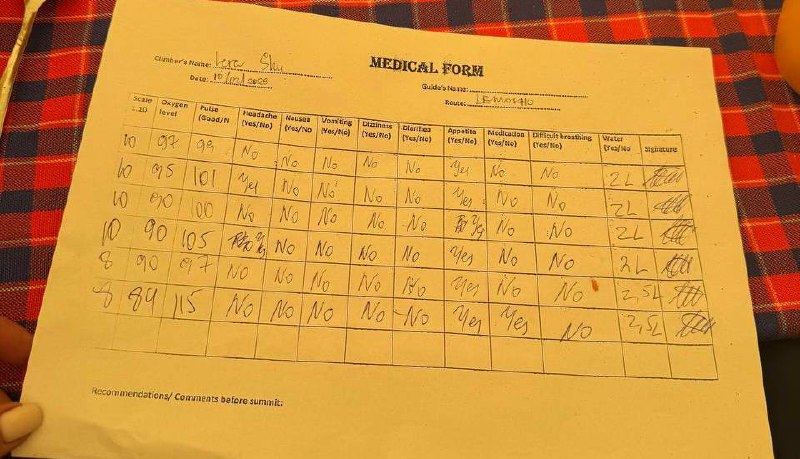 MEDICAL FORM
Climber's Name: Lexa Shu
Date: 10/02/2025
Guide's Name:
Route: LEMOSHO
Scale 1.10 Oxygen level Pulse (Good/N Headache (Yes/No) Nausea (Yes/NO Vomiting (Yes/No) Dizziness (Yes/No) Diarrhea (Yes/No) Appetite (Yes/No) Medication (Yes/No) Difficult breathing (Yes/No) Water (Yes/No Signature
10 97 99 No No No No No Yes No No 2L
10 95 101 Yes No No No No Yes No No 2L
10 90 100 No No No No No Yes No No 2L
10 90 105 Yes No No No No Yes No No 2L
8 90 97 No No No No No Yes No No 2,5L
8 89 115 No No No No No Yes Yes No 2,5L
Recommendations/ Comments before summit: